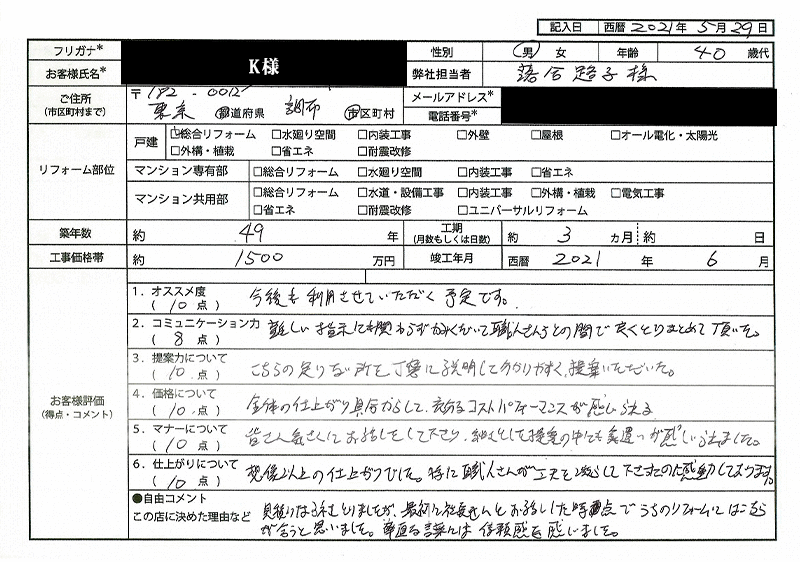 記入日 西暦 2021年 5月29日
フリガナ*
お客様氏名* K様 性別 男 女 年齢 40 歳代
弊社担当者 落合路子様
ご住所 (市区町村まで) 〒182-0012 東京 都道府県 調布 市区町村
メールアドレス*
電話番号*
リフォーム部位
戸建 □総合リフォーム □水廻り空間 □内装工事 □外壁 □屋根 □オール電化・太陽光
□外構・植栽 □省エネ □耐震改修
マンション専有部 □総合リフォーム □水廻り空間 □内装工事 □省エネ
マンション共用部 □総合リフォーム □水道・設備工事 □内装工事 □外構・植栽 □電気工事
□省エネ □耐震改修 □ユニバーサルリフォーム
築年数 約 49 年 工期 (月数もしくは日数) 約 3 ヵ月 約 日
工事価格帯 約 1500 万円 竣工年月 西暦 2021 年 6 月
お客様評価 (得点・コメント)
1. オススメ度 (10点) 今後も利用させていただく予定です。
2. コミュニケーション力 (8点) 難しい指示にも関わらずかみくだいて職人さんらとの間で良くとりまとめて頂いた。
3. 提案力について (10点) こちらの足りない所を丁寧に説明してわかりやすく、提案いただいた。
4. 価格について (10点) 全体の仕上がり具合からして、充分なコストパフォーマンスが感じられる
5. マナーについて (10点) 皆さん気さくにお話しをして下さり、提案の中にも気遣いが感じられました。
6. 仕上がりについて (10点) 想像以上の仕上がりでした。特に職人さんが工夫を凝らして下さったのに感動しております。
●自由コメント
この店に決めた理由など 見積りは3社とりましたが、最初に社長さんとお話しした時点でうちのリフォームにはこちら
が合うと思いました。率直な言葉には信頼感を感じました。